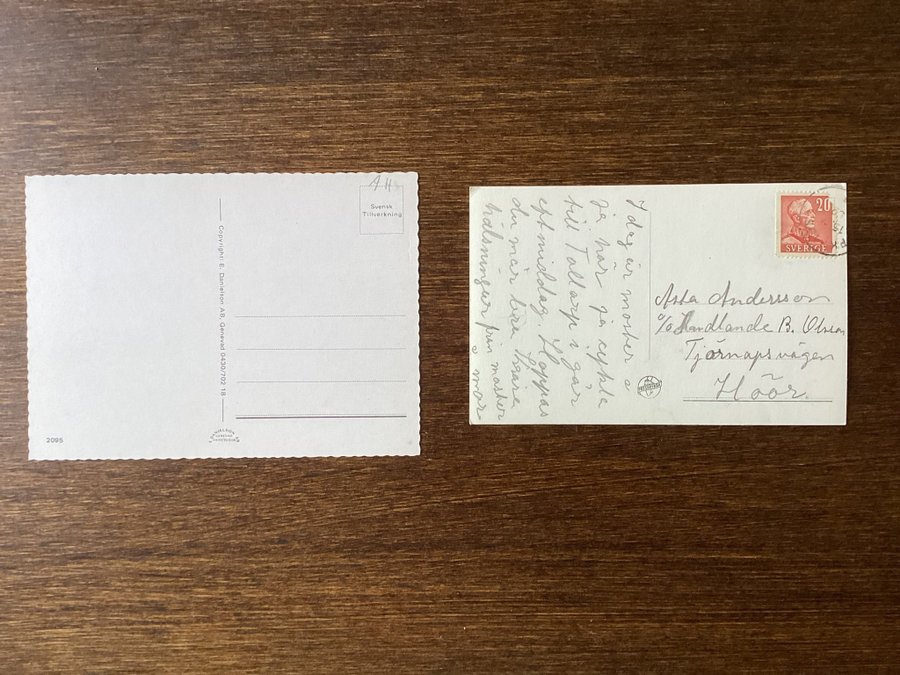 A H
Svensk
Tillverkning
Copyright: E. Danielson AB, Genevad 0430/702 18
2095
20
SVERIGE
I dag är moster o
ja här ja cykla
till Tollarp i går
eft middag. Hoppas
du mår bra
hälsningar från moster
o mor
Asta Andersson
c/o Handlande B. Olsson
Tjörnapsvägen
Höör.